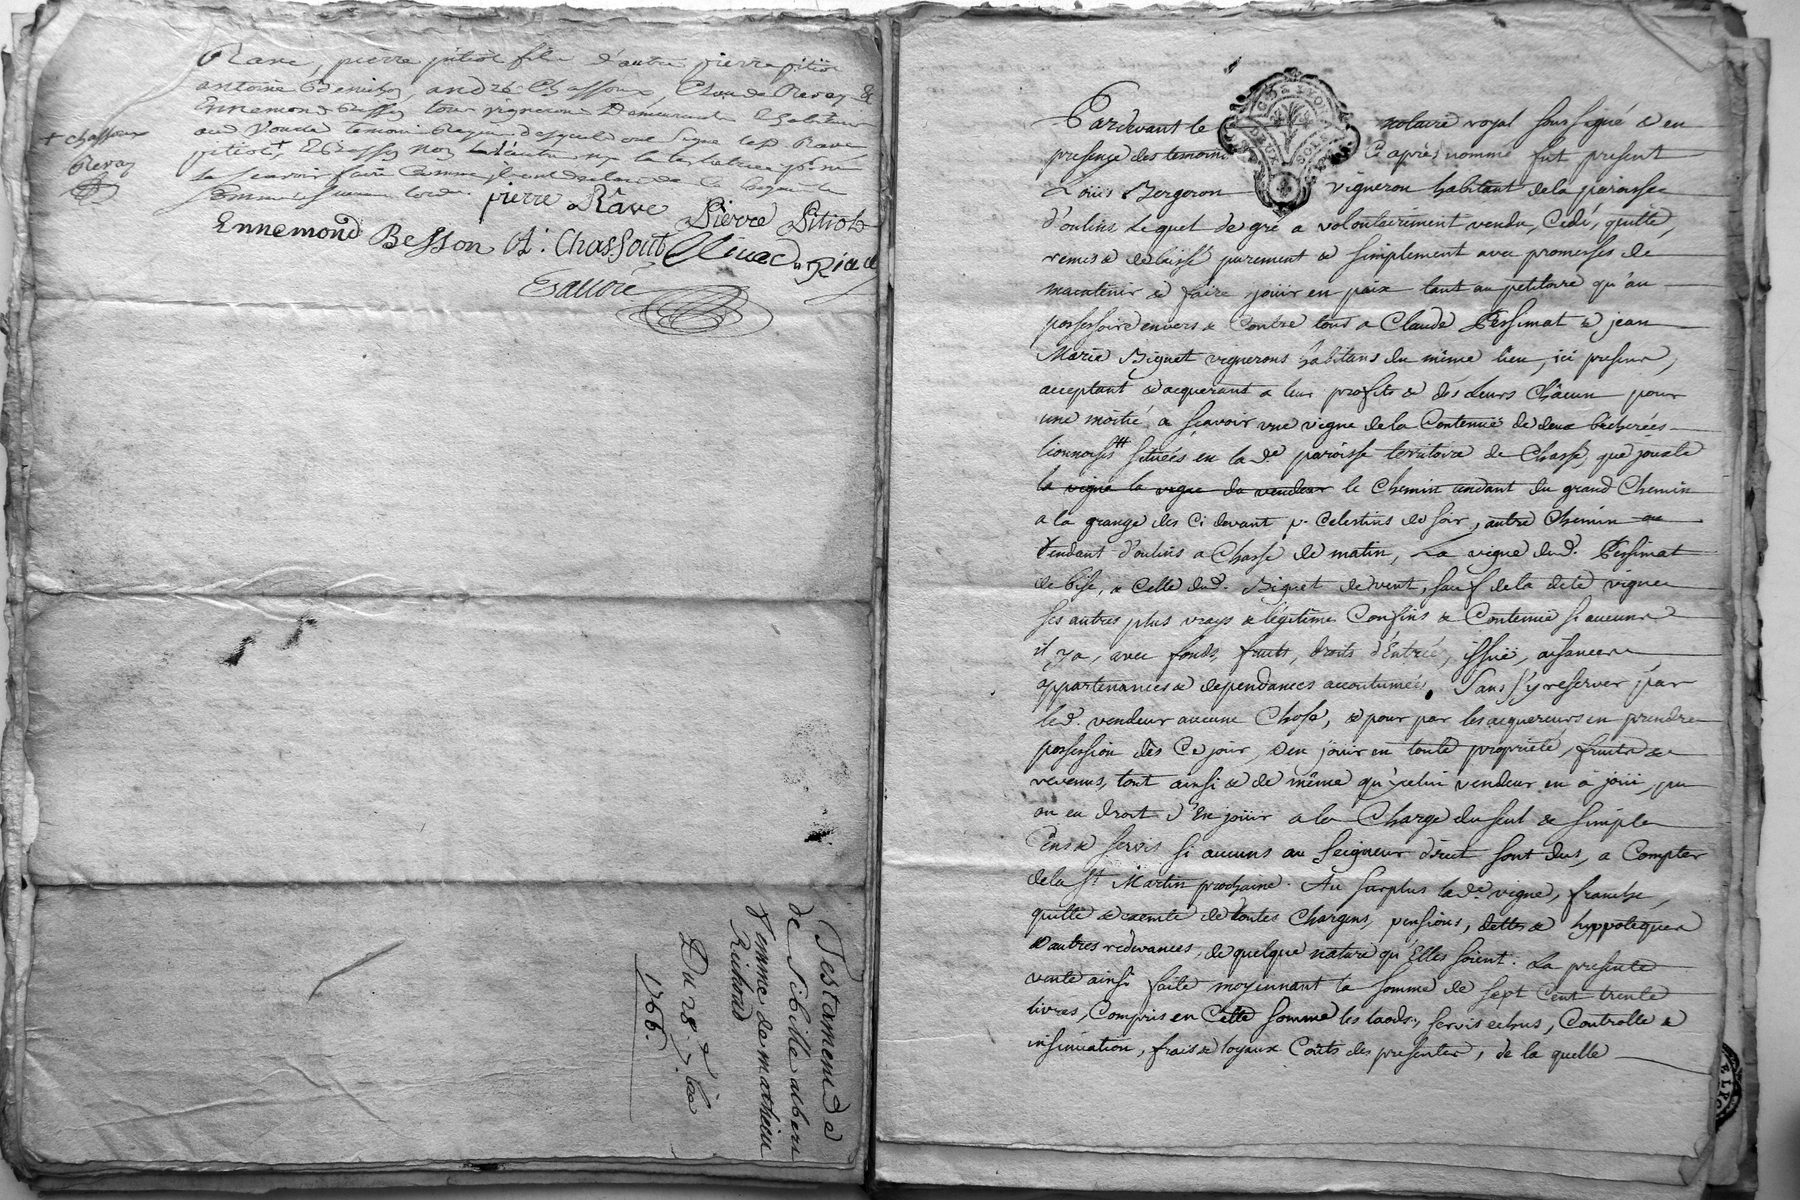 Rave, pierre pitiot fils d'autre pierre pitiot
antoine Benichon, andré Chassout, Claude Revay &
Ennemond Besson tous vignerons Demeurant
temoins Requis desquels ont signé led Rave
pitiot + & Besson non
+ chassoux
Revay
pierre Rave Pierre Pitiot
Ennemond Besson A: Chassout
Testament de
de Sibille aubert
femme de mathieu
Richond
Du 28. 7bre
1766.
Pardevant le notaire royal soussigné & en
presence des temoins Cy après nommé fut present
Louis Bergeron vigneron habitant de la paroisse
d'oulins Lequel de gré a volontairement vendu, Cédé, quitté,
remis & delaissé purement & simplement avec promesses de
maintenir & faire joüir en paix tant au petitoire qu'au
possessoire envers & Contre tous a Claude Pessimat & jean
Marie Biguet vignerons habitans du même lieu, ici presens,
acceptant & acquerants a leur profits & des Leurs Chacun pour
une moitié, a sçavoir une vigne de la Contenue de deux bécherées
lionnoises situées en la de. paroisse territoire de Chasse, que jouxte
la vigne la vigne du vendeur le Chemin tendant du grand Chemin
a la grange des Ci devant p. Celestins de soir, autre Chemin
tendant d'oulins a Chasse de matin, La vigne dud. Pessimat
de bise, & Celle dud. Biguet de vent, sauf de la dite vigne
ses autres plus vrays & légitimes Confins & Contenue si aucuns
il y a, avec fonds, fruits, droits d'Entrée, issuë, aisances,
appartenances & dependances accoutumées. Sans s'y reserver par
led. vendeur aucune Chose, & pour par les acquereurs en prendre
possession dès Ce jour, & en jouir en toute proprieté, fruits &
revenus, tout ainsi & de même qu'icelui vendeur en a joüi, pu
ou eu droit d'En joüir a la Charge du seul & simple
Cens & servis si aucuns au seigneur direct sont dus, a Compter
de la St Martin prochaine. Au surplus lade. vigne, franche,
quitte & exempte de toutes Charges, pensions, dettes & hyppoteques
& autres redevances, de quelque nature qu'Elles soient. La presente
vente ainsi faite moyennant la somme de sept Cent trente
livres, Compris en Cette somme les laods, servis echus, Controlle &
insinuation, frais & loyaux Coûts des presentes, de la quelle